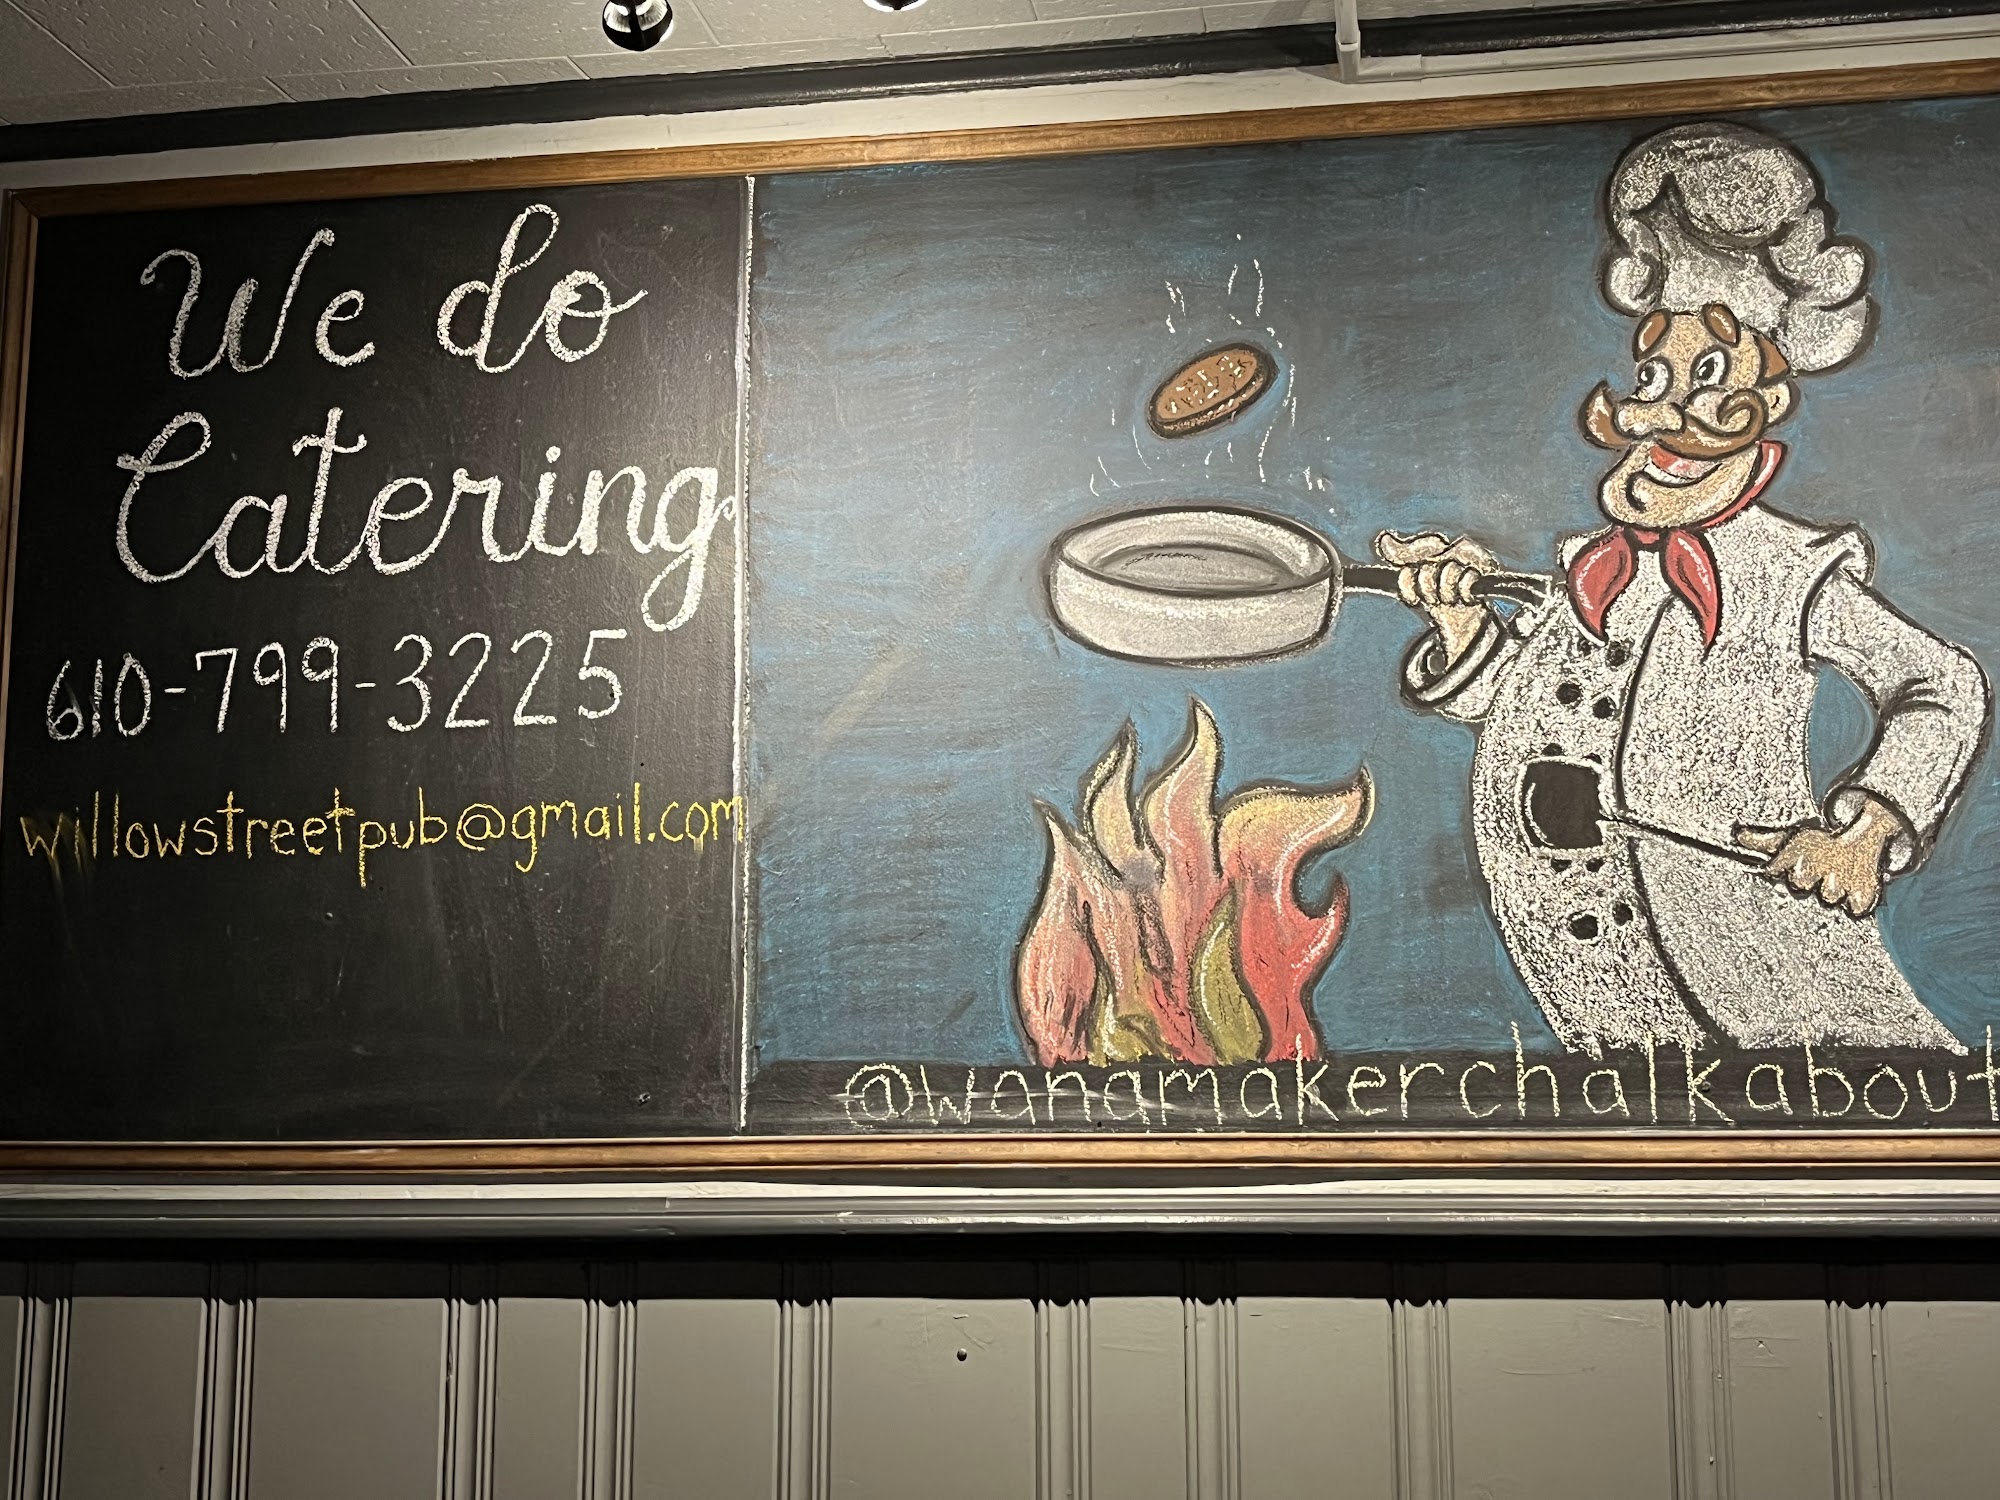 We do
Catering
610-799-3225
willowstreetpub@gmail.com
@wanamakerchalkabout